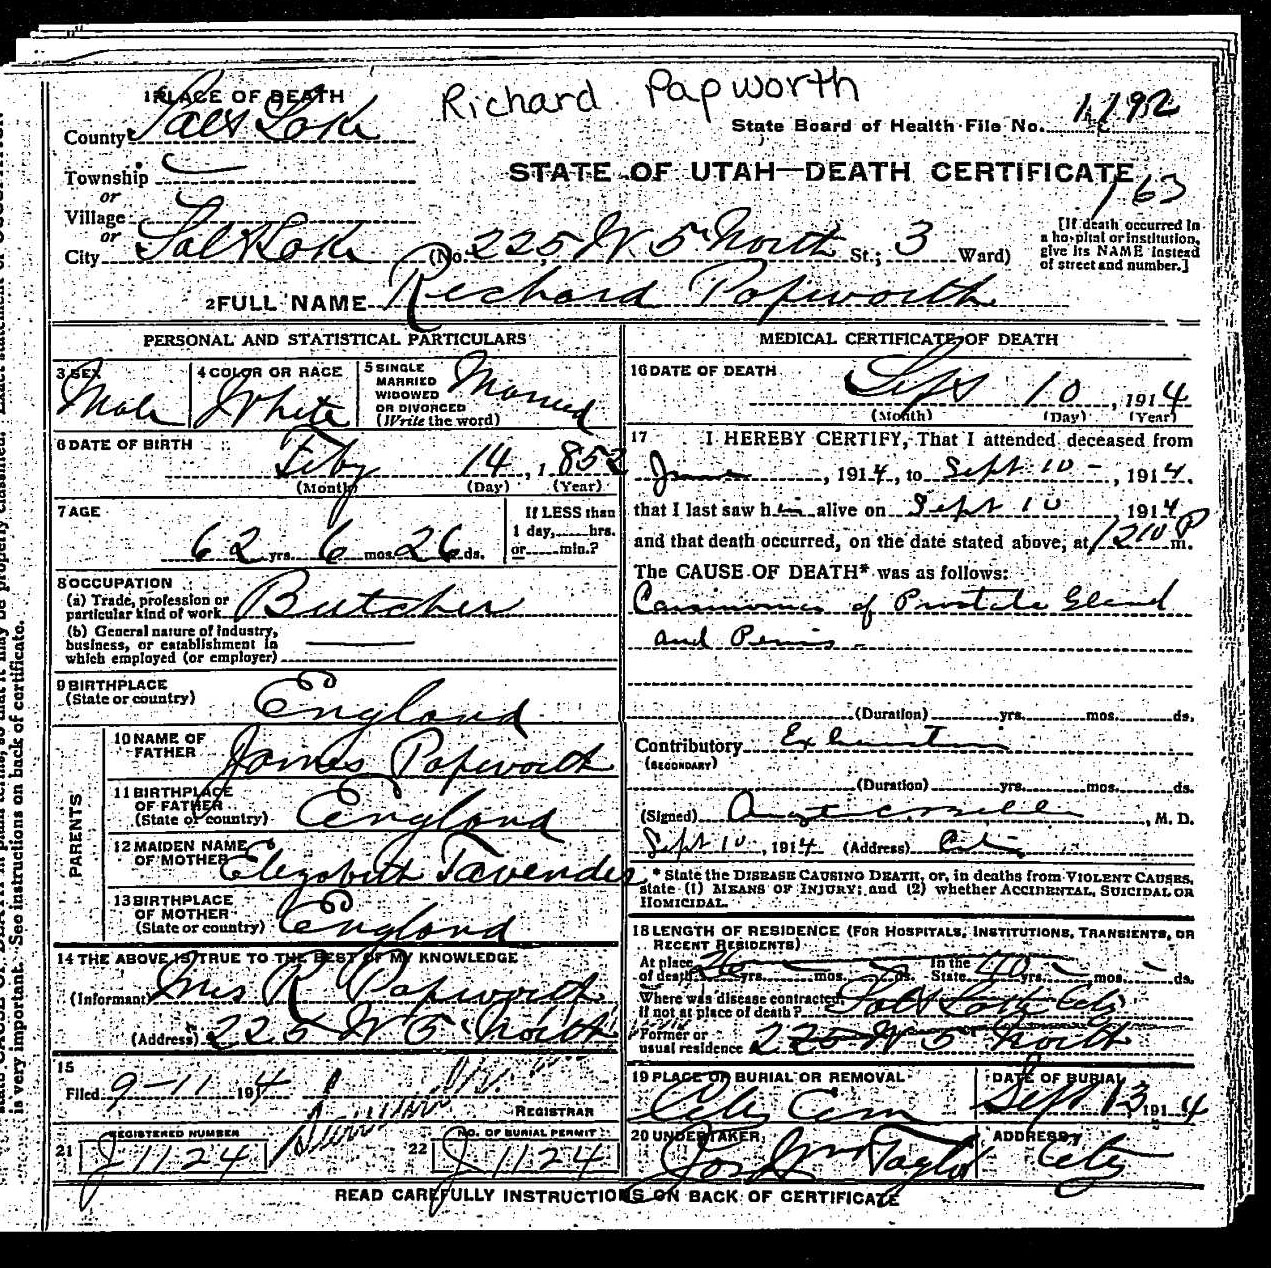 Richard Papworth
1 PLACE OF DEATH
County Salt Lake
State Board of Health File No. 1192
Township
STATE OF UTAH—DEATH CERTIFICATE
163
or
Village
or
City Salt Lake (No. 225 W 5" North St.; 3 Ward)
[If death occurred in
a hospital or institution,
give its NAME instead
of street and number.]
2 FULL NAME Richard Papworth
PERSONAL AND STATISTICAL PARTICULARS
3 SEX Male
4 COLOR OR RACE White
5 SINGLE
MARRIED
WIDOWED
OR DIVORCED
(Write the word) Married
6 DATE OF BIRTH
Feby 14, 1852
(Month) (Day) (Year)
7 AGE
62 yrs. 6 mos. 26 ds.
If LESS than
1 day, hrs.
or min.?
8 OCCUPATION
(a) Trade, profession or
particular kind of work Butcher
(b) General nature of industry,
business, or establishment in
which employed (or employer)
9 BIRTHPLACE
(State or country) England
PARENTS
10 NAME OF
FATHER James Papworth
11 BIRTHPLACE
OF FATHER
(State or country) England
12 MAIDEN NAME
OF MOTHER Elizabeth Tavender
13 BIRTHPLACE
OF MOTHER
(State or country) England
14 THE ABOVE IS TRUE TO THE BEST OF MY KNOWLEDGE
(Informant) Mrs R Papworth
(Address) 225 W 5" North
15
Filed 9-11 1914
REGISTRAR
21 REGISTERED NUMBER
J 1124
22 NO. OF BURIAL PERMIT
J 1124
MEDICAL CERTIFICATE OF DEATH
16 DATE OF DEATH
Sept 10, 1914
(Month) (Day) (Year)
17 I HEREBY CERTIFY, That I attended deceased from
June, 1914, to Sept 10-, 1914.
that I last saw him alive on Sept 10, 1914
and that death occurred, on the date stated above, at 1210 P m.
The CAUSE OF DEATH* was as follows:
Carsinoma of Prostate Gland
and Penis -
(Duration) yrs. mos. ds.
Contributory Exhaustion
(SECONDARY)
(Duration) yrs. mos. ds.
(Signed) M. D.
Sept 10, 1914 (Address) City
* State the DISEASE CAUSING DEATH, or, in deaths from VIOLENT CAUSES,
state (1) MEANS OF INJURY; and (2) whether ACCIDENTAL, SUICIDAL OR
HOMICIDAL.
18 LENGTH OF RESIDENCE (FOR HOSPITALS, INSTITUTIONS, TRANSIENTS, OR
RECENT RESIDENTS)
At place
of death 26 yrs. mos. ds. In the
State 40 yrs. mos. ds.
Where was disease contracted,
if not at place of death? Salt Lake City
Former or
usual residence 225 W 5" North
19 PLACE OF BURIAL OR REMOVAL
City Cem
DATE OF BURIAL
Sept 13 1914
20 UNDERTAKER
Jos Wm Taylor
ADDRESS
City
READ CAREFULLY INSTRUCTIONS ON BACK OF CERTIFICATE
is very important. See instructions on back of certificate.